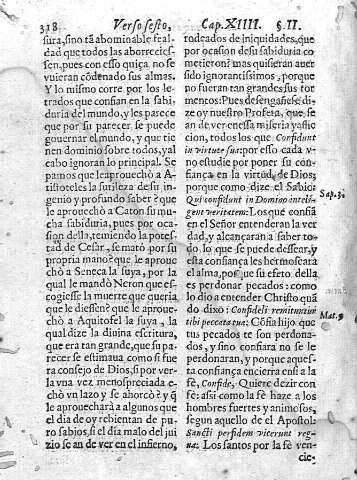 318 Verso sesto, Cap. XIIII. §. II.
sura, sino tã abominable feal-
dad que todos las aborrecies-
sen, pues con esso quiça no se
vuieran cõdenado sus almas.
Y lo mismo corre por los le-
trados que confian en la sabi-
duria del mundo, y les parece
que por su parecer se puede
gouernar el mundo, y que tie-
nen dominio sobre todos, y al
cabo ignoran lo principal. Se
pamos que le aprouechò a A-
ristoteles la sutileza de su in-
genio y profundo saber? que
le aprouechò a Caton su mu-
cha sabiduria, pues por oca-
sion della, temiendo la potes-
tad de Cesar, se mató por su
propria mano? que le aproue-
chò a Seneca la suya, por la
qual le mandò Neron que es-
cogiesse la muerte que queria
que le diessen? que le aproue-
chò a Aquitofel la suya, la
qual dize la diuina escritura,
que era tan grande, que su pa-
recer se estimaua como si fue
ra consejo de Dios, si por ver-
la vna vez menospreciada e-
chò vn lazo y se ahorcò? y q̃
le aprouechará a algunos que
el dia de oy rebientan de pu-
ro sabios, si el dia mas del jui
zio se an de ver en el infierno,
rodeados de iniquidades, que
por ocasion de su sabiduria co
metieron? mas quisieran auer
sido ignorantissimos, porque
no fueran tan grandes sus tor
mentos: Pues desengañese di-
ze oy nuestro Profeta, que se
an de ver en essa miseria y afli
cion, todos los que Confidunt
in virtute sua: por esso cada v-
no estudie por poner su con-
fiança en la virtud, de Dios;
porque como dize el Sabio:
Qui confidunt in Domino intelli-
gent veritatem: Los que confiã
en el Señor entenderan la ver
dad, y alcançaran a saber to-
do lo que se puede dessear, y
esta confiança les hermosea rà
el alma, porque su efeto della
es perdonar pecados: como
lo dio a entender Christo quã
do dixo: Confide fili remittuntur
tibi peccata tua: Cõfia hijo que
tus pecados te son perdona-
dos, y sino confiara no se le
perdonaran, y porque aques-
ta confiança encierra ensi a la
fè, Confide, Quiere dezir con
fè: assi como la fè haze a los
hombres fuertes y animosos,
segun aquello de el Apostol:
Sancti per fidem vicerunt reg-
na: Los santos por la fè ven-
cie-
Sap. 3.
Mat. 9